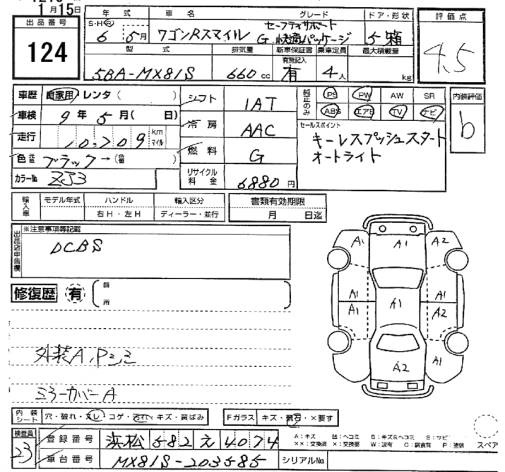 1月15日
出品番号
124
年式 車名 グレード ドア・形状
S・H・R 6年 5月 ワゴンRスマイル G セーフティサポート 快適パッケージ 5 箱
型式 排気量 新車保証書 乗車定員 最大積載量
5BA-MX81S 660cc 有 4人 kg
評価点
4.5
車歴 自家用 レンタ( )
車検 9年5月( 日)
走行 10,709 km マイル
色 ブラック→
カラーNo Z53
シフト 1AT
冷房 AAC
燃料 G
リサイクル料金 6880円
純正のみ
PS PW AW SR
ABS エアB TV ナビ
セールスポイント
キーレスプッシュスタート
オートライト
内装評価
b
輸入車 モデル年式 ハンドル 輸入区分
年 右H・左H ディーラー・並行
書類有効期限
月 日迄
出品店申告欄
※注意事項等記載
DCBS
修復歴 有 箇所
外装A,Pコミ
ミラーカバーA
A1 A1 A2
A1 A1 A1 A2
A1 A2
A2
内装シート 穴・破れ・スレ・コゲ・汚れ・キズ・黄ばみ
Fガラス キズ・飛石・×要す
検査員 23
登録番号 浜松 582 え 4074
車台番号 MX81S-203585
シリアルNo
A:キズ
スペア